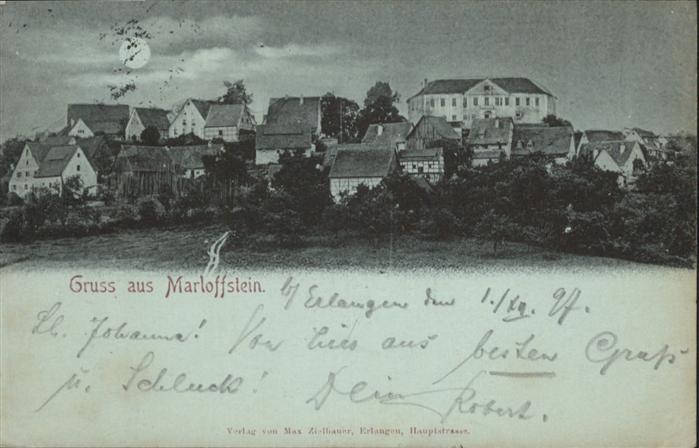 Gruss aus Marloffstein.
b/ Erlangen den 1./XI. 97.
Lb. Johanna! Von hier aus besten Gruß
u. Schluck! Dein Robert.
Verlag von Max Zielbauer, Erlangen, Hauptstrasse.